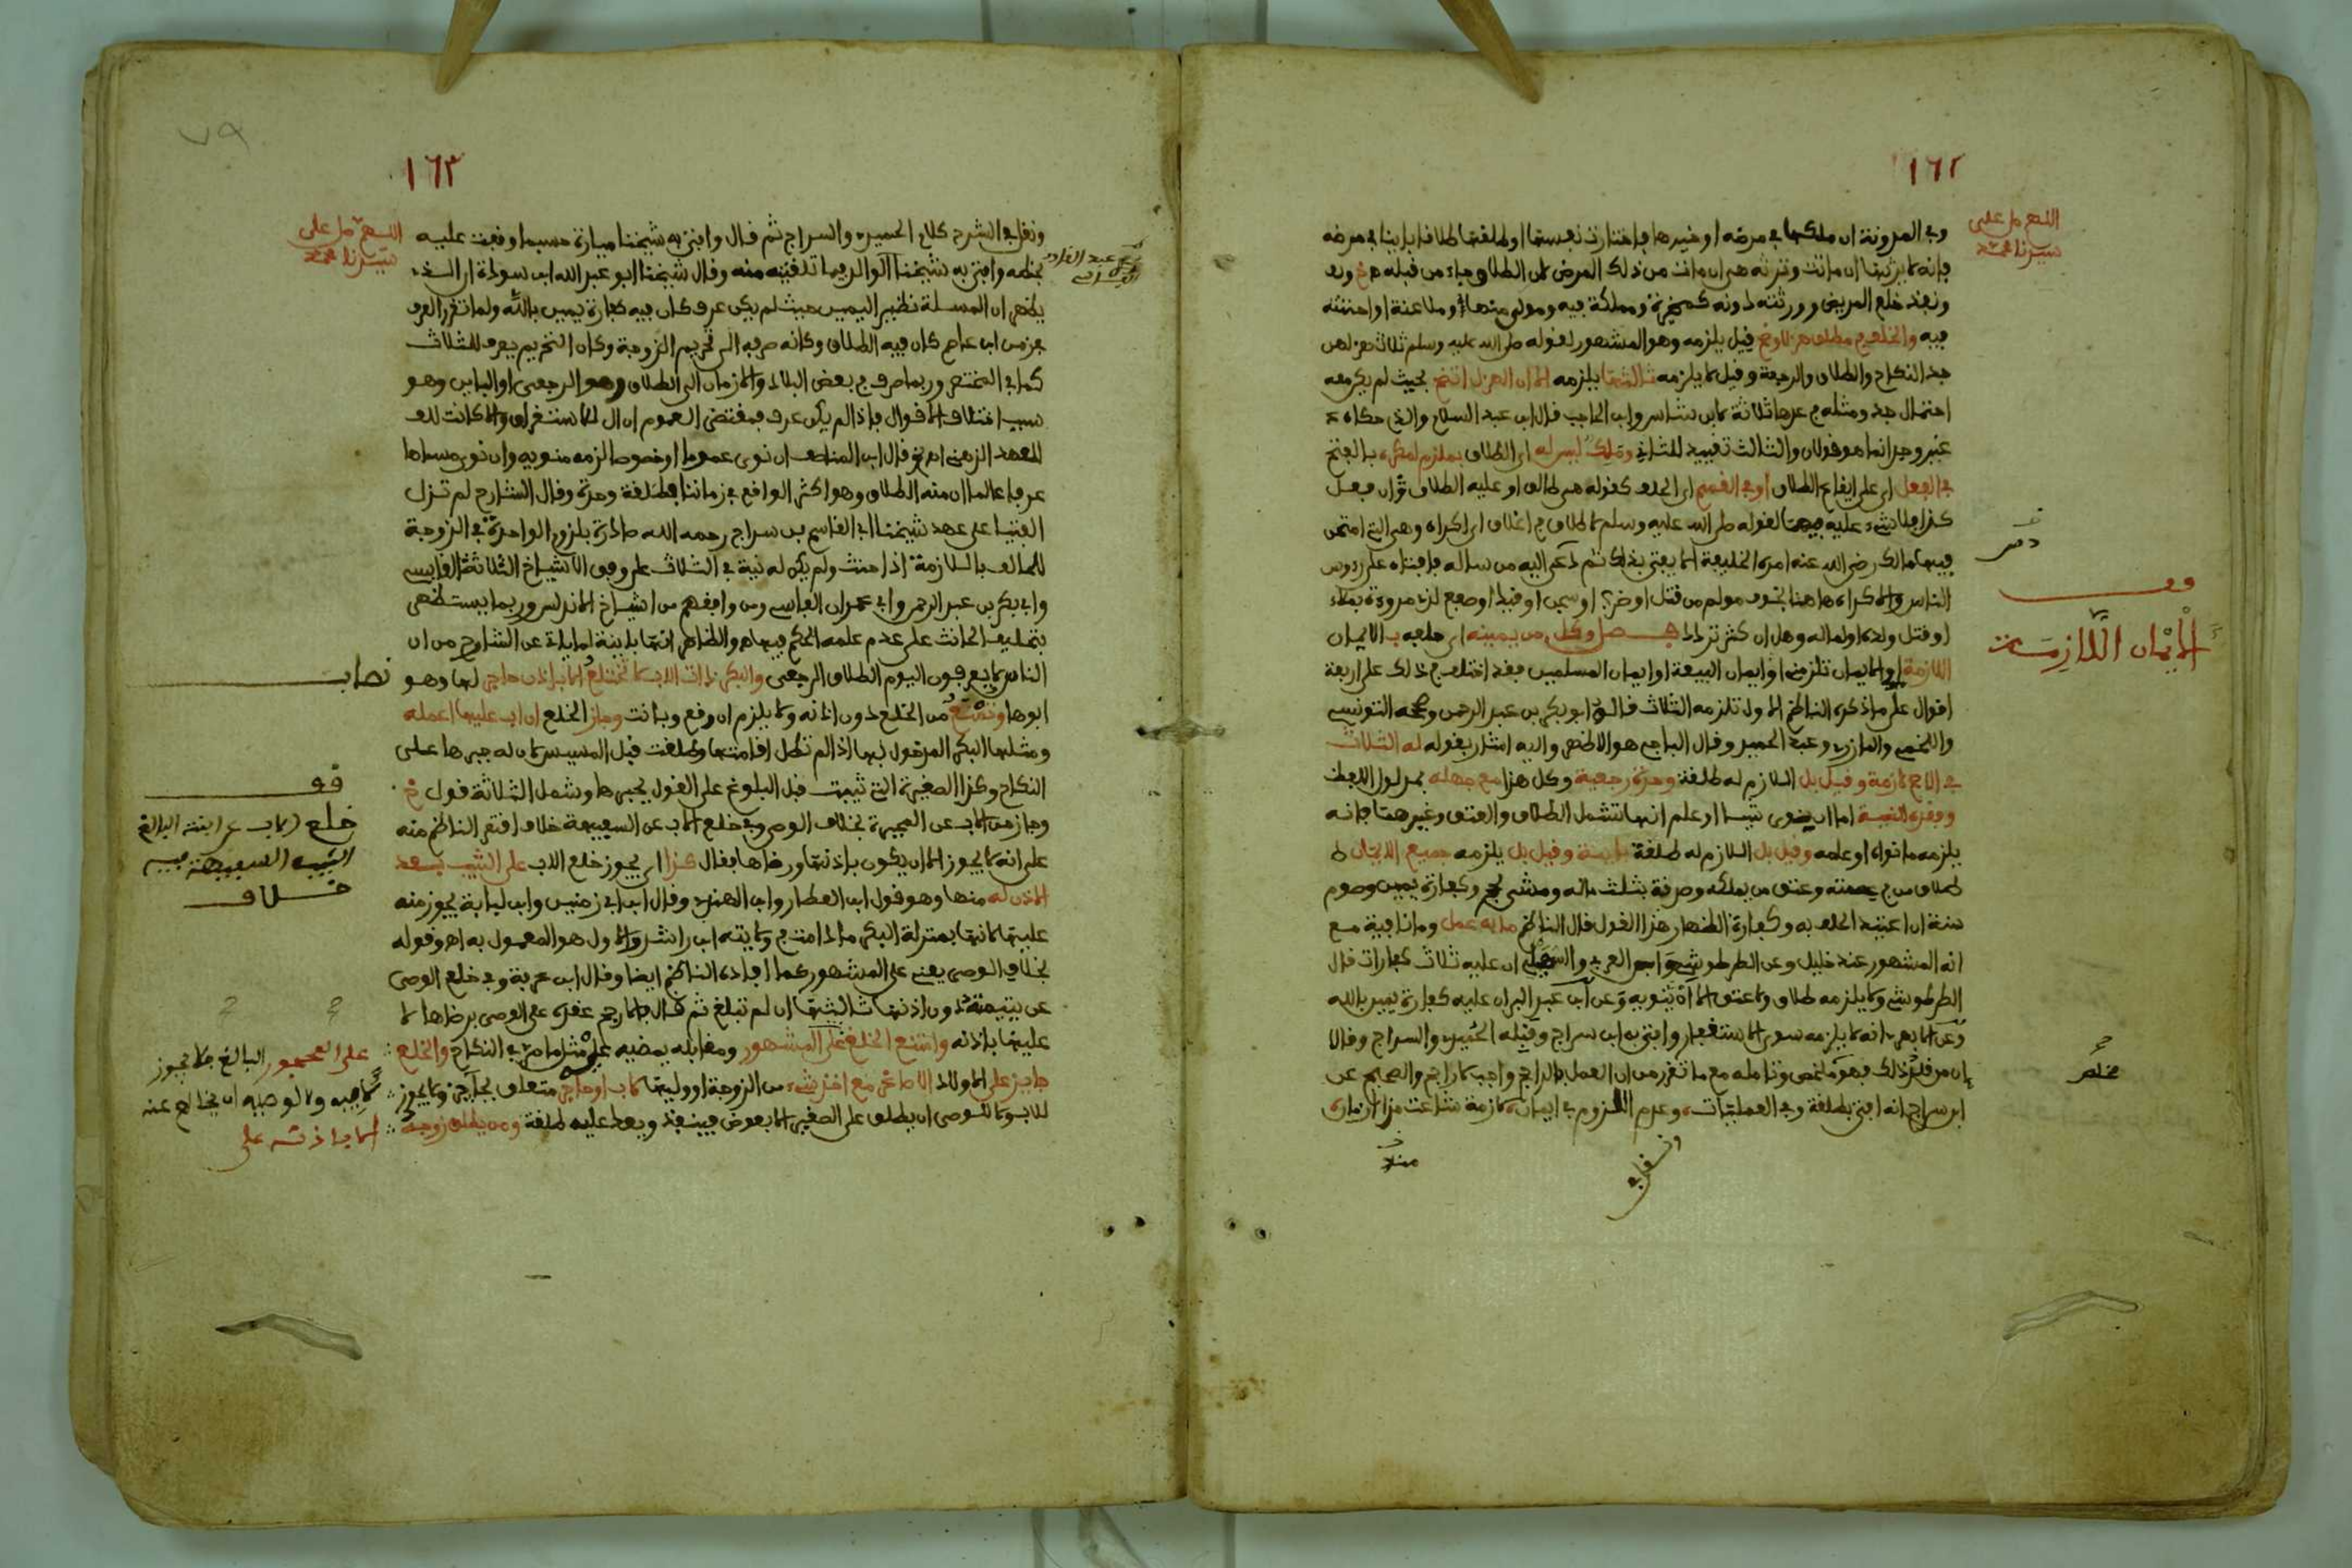 ١٦٢
اللهم صل على
سيدنا محمد
وفي المدونة ان ملكها في مرضه او خيرها فاختارت نفسها او طلقها طلاقا باينا في مرضه
فانه لا يرثها ان ماتت وترثه هي ان مات من ذلك المرض لان الطلاق جاء من قبله
ونفذ خلع المريض وورثته دونه كمخيرة ومملكة فيه ومولى منها وملاعنة او احنثته
فيه والخلف في مطلق هزلا وضح فقيل يلزمه وهو المشهور لقوله صلى الله عليه وسلم ثلاث هزلهن
جد النكاح والطلاق والرجعة وقيل لا يلزمه ثالثها يلزمه الا ان الهزل اتضح بحيث لم يكن معه
احتمال جد ومثله في عدها ثلاثة لابن شاس وابن الحاجب قال ابن عبد السلام والذي حكاه
غير وحد انما هو قولان والثالث تقييد للثاني ومالك ليس له اي الطلاق بملزم لمكره بالفتح
في الفعل اي على ايقاع الطلاق او في القسم اي الحلف كقوله هي طالق او عليه الطلاق ان فعل
كذا فلا شيء عليه فيهما لقوله صلى الله عليه وسلم لا طلاق في اغلاق اي اكراه وهي التي امتحن
فيها مالك رضي الله عنه امره الخليفة الا يفتي بذلك ثم دعي اليه من ساله فافتاه على رءوس
الناس والاكراه هاهنا بخوف مولم من قتل او ضر او سجن او قيد او صفع لذي مروءة بملاء
او قتل ولده او لماله وهل ان كثر تردد فصل وكل من يمينه اي حلفه بالايمان
اللازمة او الايمان تلزمني او ايمان البيعة او ايمان المسلمين فقد اختلف في ذلك على اربعة
اقوال على ما ذكره الناظم الاول تلزمه الثلاث قاله ابو بكر بن عبد الرحمن وصححه التونسي
واللخمي والمازري وعبد الحميد وقال الباجي هو الاظهر واليه اشار بقوله له الثلاث
في الاصح لازمة وقيل بل اللازم له طلقة وحدة رجعية وكل هذا مع جهله بمدلول اللفظ
وفقده النية اما ان نوى شيئا او علم انها تشمل الطلاق والعتق وغيرهما فانه
يلزمه ما نواه او علمه وقيل بل اللازم له طلقة باينة وقيل بل يلزمه جميع الايمان
طلاق من في عصمته وعتق من يملكه وصدقة بثلث ماله ومشي بحج وكفارة يمين وصوم
سنة ان اعتيد الحلف به وكفارة الظهار هذا القول قال الناظم ما به عمل ومانافية مع
انه المشهور عند خليل وعن الطرطوشي وابن العربي والسهيلي ان عليه ثلاث كفارات قال
الطرطوشي ولا يلزمه طلاق ولا عتق الا ان ينويه وعن ابن عبد البر ان عليه كفارة يمين بالله
وعن الابهري انه لا يلزمه سوى الاستغفار وافتى به ابن سراج وقبله الحميدي والسراج وقالا
ان من قلد ذلك فهو مخلص وتامله مع ما تقرر من ان العمل بالراجح واجب لا راجح والصحيح عن
ابن سراج انه افتى بطلقة وفي العمليات وعدم اللزوم في ايمان لازمة شاعت مدا ازمان
ونقل في
قف
الايمان اللازمة
مخلص
١٦٣
اللهم صل على
سيدنا محمد
ونقل في الشرح كلام الحميدي والسراج ثم قال وافتى به شيخنا ميارة حسبما وقفت عليه
بخطه وافتى به شيخنا الوالد فيما تلقيته منه وقال شيخنا ابو عبد الله ابن سودة ان الذي
يظهر ان المسلة نظير اليمين حيث لم يكن عرف كان فيه كفارة يمين بالله ولما تقرر العرف
من ابن عاصم كان فيه الطلاق وكانه صرفه الى تحريم الزوجة وكان التحريم يعرف للثلاث
كما في المختصر وربما صرف في بعض البلاد والازمان الى الطلاق وهو الرجعي او الباين وهو
سبب اختلاف الاقوال فاذا لم يكن عرف فمقتضى العموم ان ال للاستغراق والا كانت للعـ
للعهد الذهني قال ابن المناصف ان نوى عموما او خصوصا لزمه منويه وان نوى مسماها
عرفا عالما ان منه الطلاق وهو اكثر الواقع في زماننا فطلقة وحدة وقال الشارح لم تزل
الفتيا على عهد شيخنا ابي القاسم بن سراج رحمه الله صادرة بلزوم الواحدة في الزوجة
للحالف باللازمة اذا حنث ولم يكن له نية في الثلاث على وفق الاشياخ الثلاثة القابسي
وابي بكر بن عبد الرحمن وابي عمران الفاسي ومن وافقهم من اشياخ الاندلس وربما يستظهر
بتحليف الحانث على عدم علمه الحكم فيها والظاهر انها باينة لما ياتي عن الشارح من ان
الناس لا يعرفون اليوم الطلاق الرجعي والبكر ذات الاب لا تختلع الا باذن حاجر لها وهو
ابوها وتمنع من الخلع دون اذنه ولا يلزم ان وقع وبانت وجاز الخلع ان اب عليها اعمله
ومثلها البكر المدخول بها اذا لم تطل اقامتها وطلقت قبل المسيس لان له جبرها على
النكاح وكذا الصغيرة التي ثيبت قبل البلوغ على القول بجبرها وشمل الثلاثة قول
وجاز من الاب عن المجبرة بخلاف الوصي وفي خلع الاب عن السفيهة خلاف اقتصر الناظم منه
على انه لا يجوز الا ان يكون باذنها ورضاها فقال كذا اي يجوز خلع الاب على الثيب بعد
الاذن له منها وهو قول ابن العطار وابن الهندي وقال ابن ابي زمنين وابن لبابة يجوز منه
عليها لانها بمنزلة البكر ما دامت في ولايته ابن راشد والاول هو المعمول به اه وقوله
بخلاف الوصي يعني على المشهور كما افاده الناظم ايضا وقال ابن عرفة وفي خلع الوصي
عن يتيمته دون اذنها ثالثها ان لم تبلغ ثم قال فالارجح عقده على الوصي برضاها لا
عليها باذنه وامتنع الخلع على المشهور ومقابله يمضيه على مثل ما مر في النكاح والخلع
جايز على الاولاد الاصاغر مع اخذ شيء من الزوجة او وليها لاب او حاجر متعلق بجايز ولا يجوز
للاب ولا للوصي ان يطلق على الصغير الا بعوض فينفذ ويعد عليه طلقة ومن يطلق زوجة
نصاب
قف
خلع الاب عن ابنته البالغ
الثيب السفيهة فيه
خلاف
على المحجور البالغ فلا يجوز
لابيه ولا لوصيه ان يخالع عنه
الا باذنه على